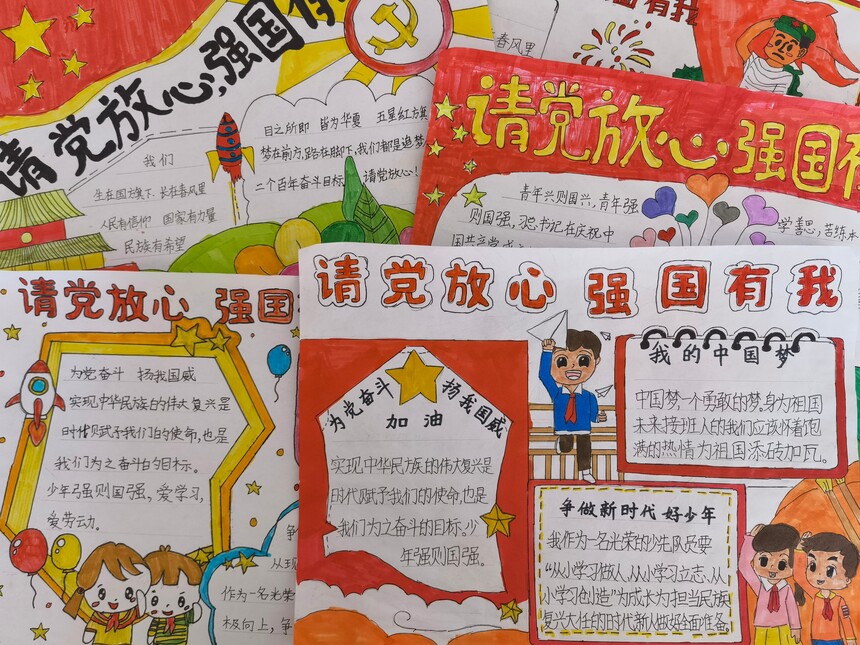 请党放心,强国
我们
生在国旗下,长在春风里
人民有信仰 国家有力量
民族有希望
目之所即 皆为华夏 五星红方旗
梦在前方,路在脚下,我们都是追梦
二个百年奋斗目标 请党放心!
春风里
有我
请党放心 强国有
青年兴则国兴,青年强
则国强,习总书记在庆祝中
国共产党成
学
苦练本
请党放心 强国
为党奋斗 扬我国威
实现中华民族的伟大复兴是
时代赋予我们的使命,也是
我们为之奋斗的目标。
少年强则国强,爱学习,
爱劳动。
从现
作为一名光荣
极向上,争
请党放心 强国有我
为党奋斗 扬我国威
加油
实现中华民族的伟大复兴是
时代赋予我们的使命,也是
我们为之奋斗的目标。少
年强则国强。
我的中国梦
中国梦,一个勇敢的梦,身为祖国
未来接班人的我们应该怀着饱
满的热情为祖国添砖加瓦。
争做新时代 好少年
我作为一名光荣的少先队员要
“从小学习做人、从小学习立志、从
小学习创造”为成长为担当民族
复兴大任的时代新人做好全面准备。